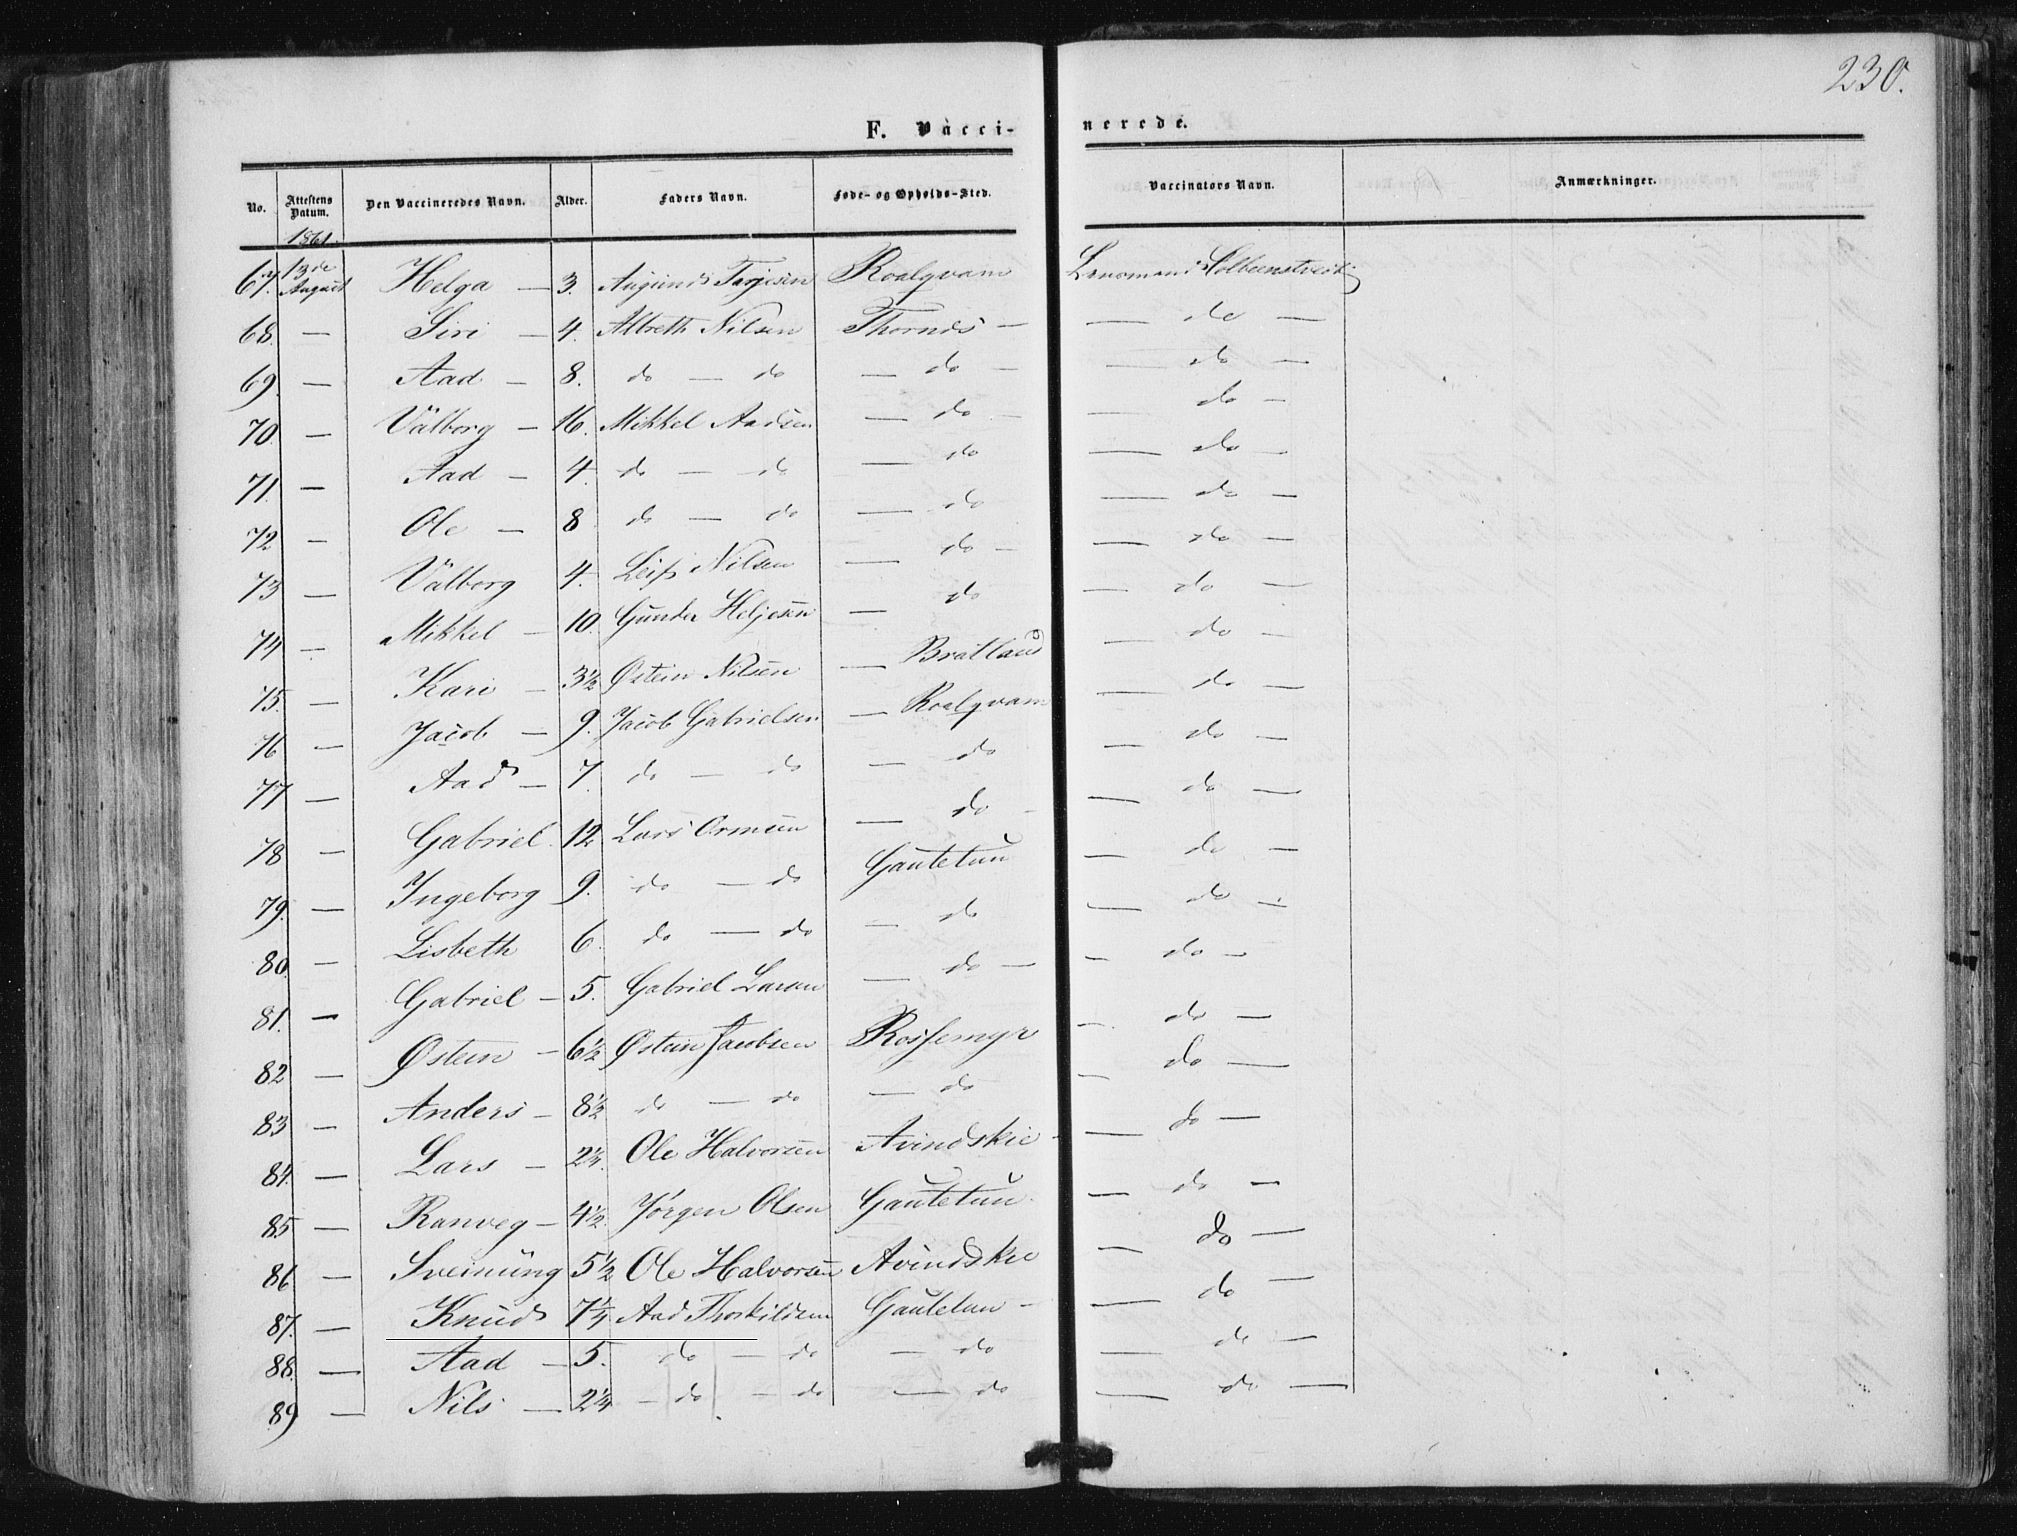 230.
F. Vacci-nerede.
No. Attestens Datum. Den Vaccineredes Navn. Alder. Faders Navn. Føde- og Opholds-Sted. Vaccinators Navn. Anmærkninger.
1861.
67. 13de August Helga — 3. Augund Tarjesen Roalqvam
68. — Siri — 4. Albreth Nilsen Thornds — — do —
69. — Aad — 8. do — do — do — — do —
70. — Valborg — 16. Mikkel Aadsen — do — — do —
71. — Aad — 4. do — do — do — do —
72 — Ole — 8 do — do — do — do —
73 — Valborg 4. Leif Nilsen — do — — do —
74 — Mikkel — 10. Gunder Heljesen — do — do —
75. — Kari — 3½ Østein Nilsen — Bratland — do —
76 — Jacob — 9. Jacob Gabrielsen — Roalqvam — do —
77 — Aad — 7. do — do — do — do —
78 — Gabriel 12 Lars Ormsen — do — — do —
79. — Ingeborg 9. do — do Gautetun — do —
80. — Lisbeth 6. do — do — do — do —
81. — Gabriel — 5. Gabriel Larsen — do — — do —
82 — Østein — 6½ Østein Jacobsen Rossemyr — do —
83 — Anders — 8½ do — do — do — do —
84. — Lars — 2¼ Ole Halvorsen Avindskie — do —
85 — Ranveg — 4½ Jørgen Olsen Gautetun. — do —
86 — Sveinung 5½ Ole Halvorsen Avindskie — do —
87. — Knud 7¼ Aad Thorkildsen Gautetun — — do —
88. — Aad — 5. do — do — do — do —
89 — Nils — 2¼ — do — do — do — do —